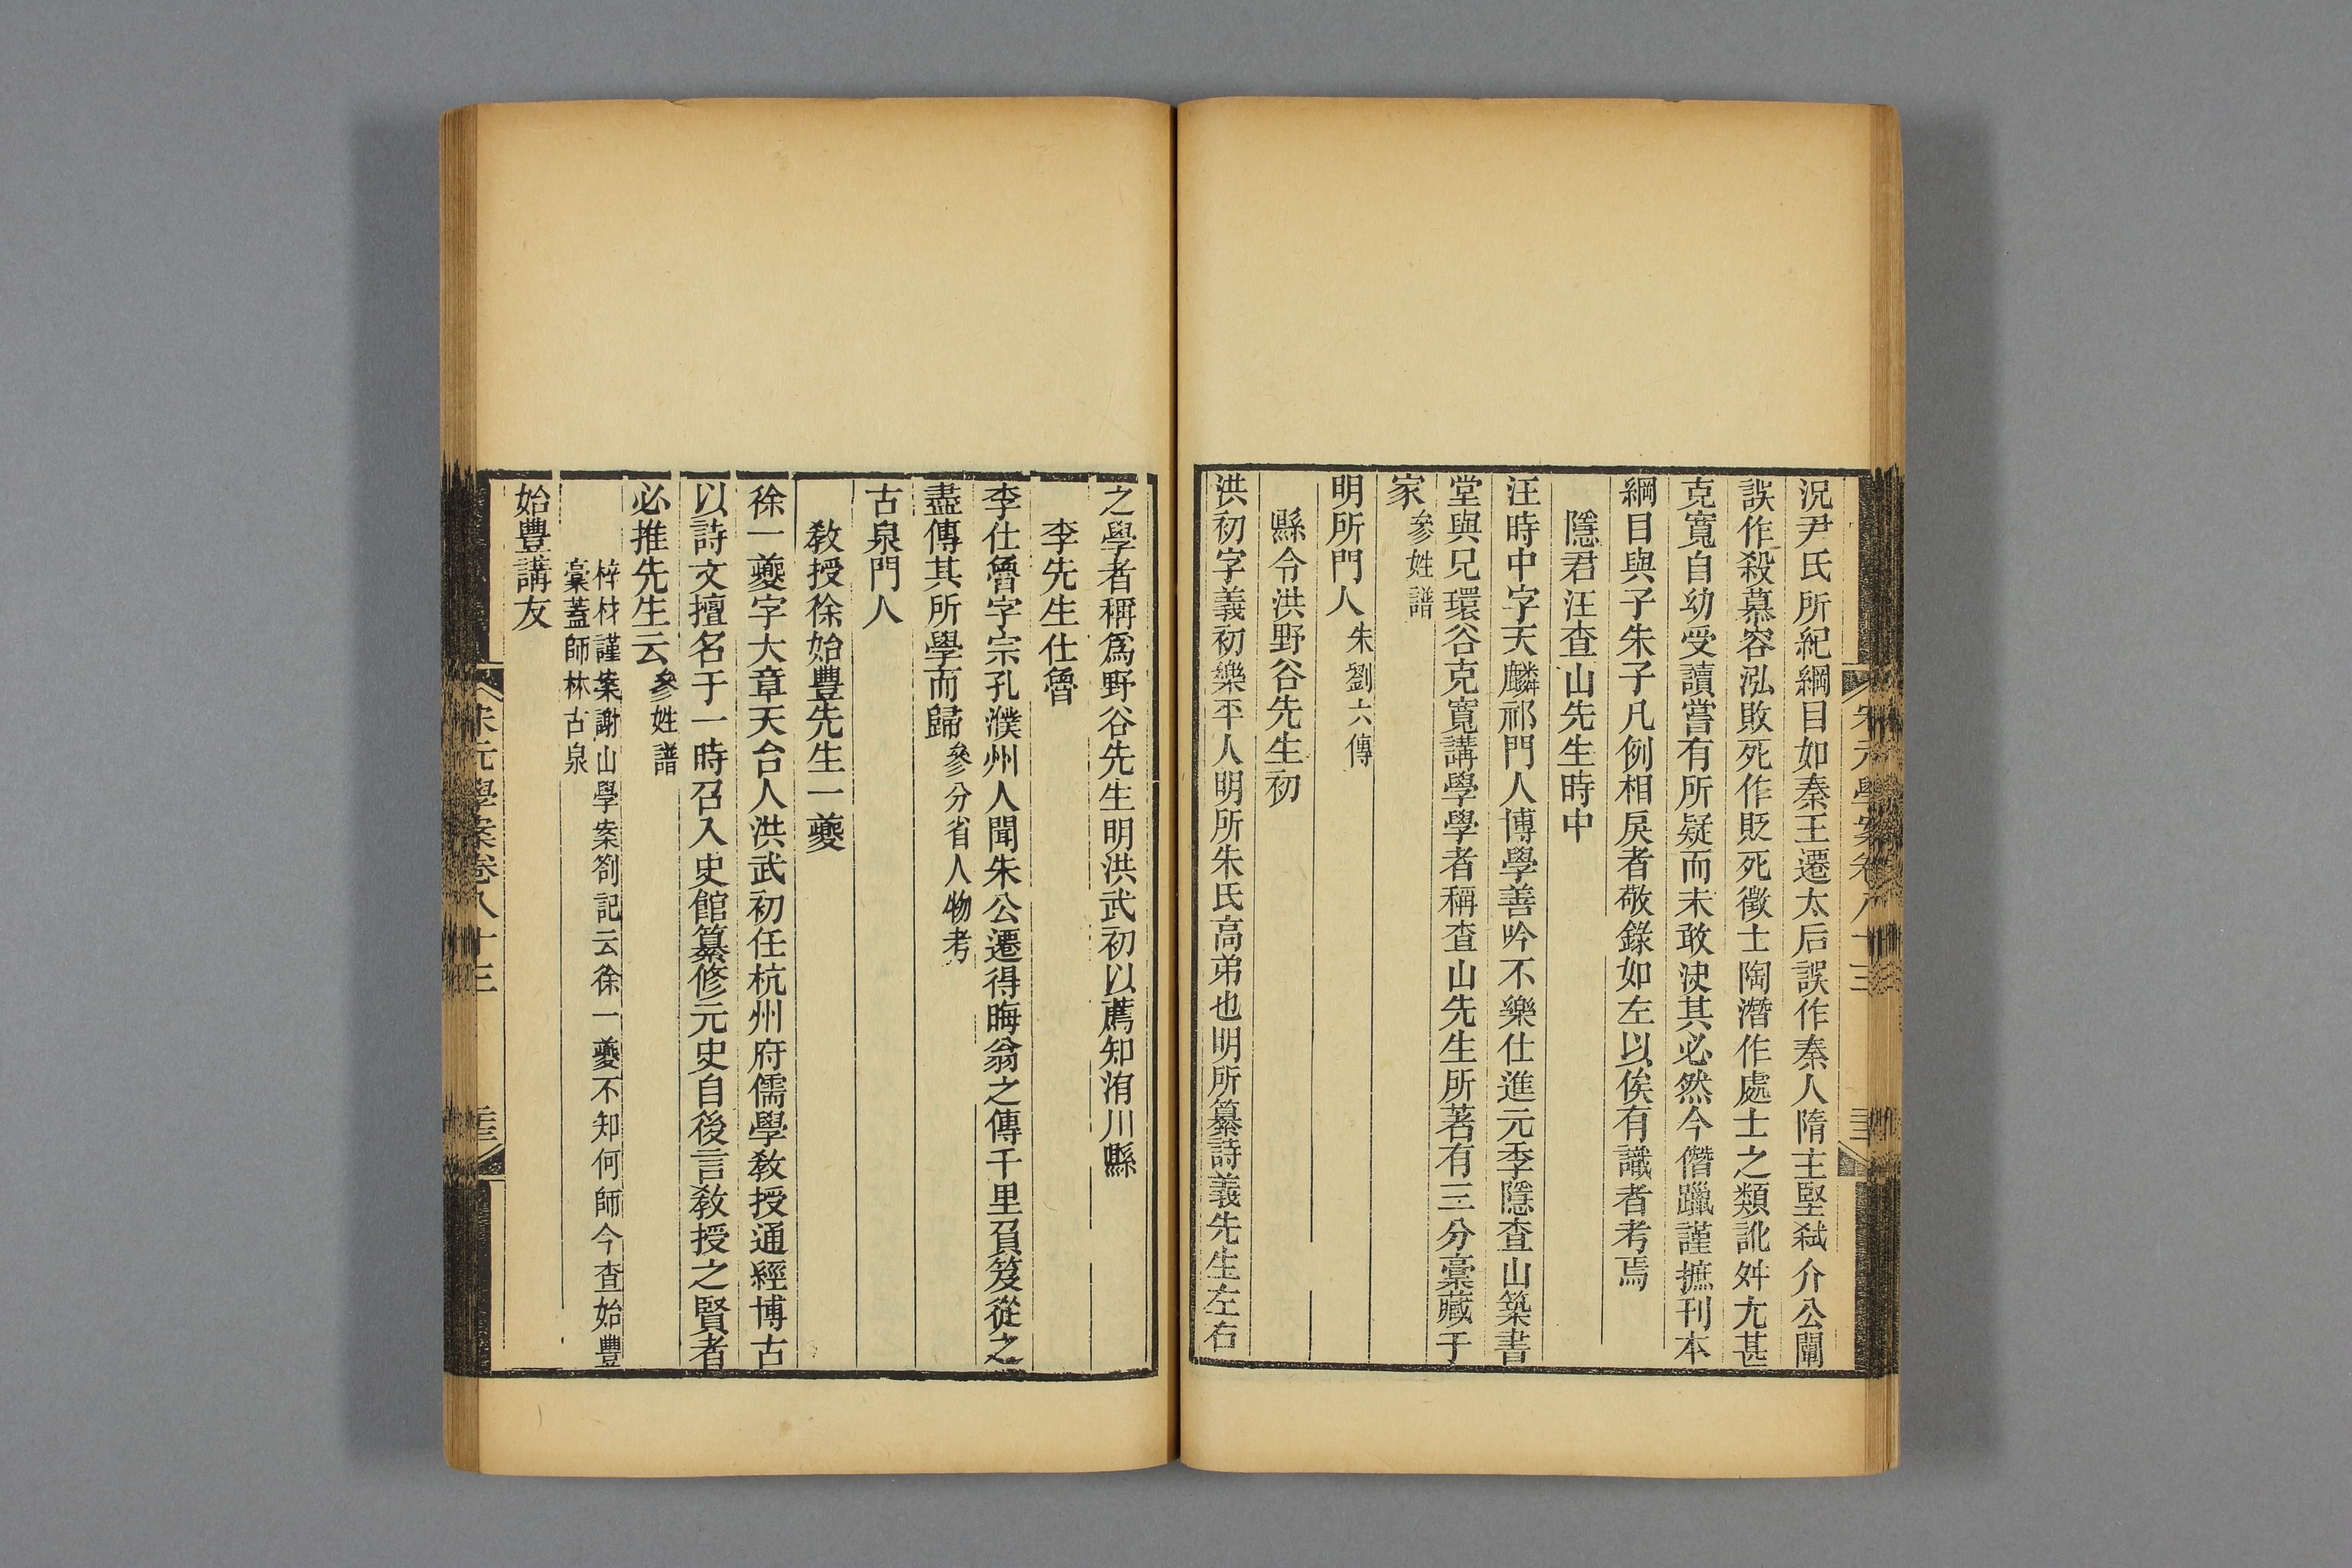 況尹氏所紀綱目如秦王遷太后誤作秦人隋主堅弒介公闡
誤作殺慕容泓敗死作貶死徵士陶潛作處士之類訛舛尢甚
克寬自幼受讀嘗有所疑而未敢决其必然今僭躐謹摭刊本
綱目與子朱子凡例相戾者敬錄如左以俟有識者考焉
隱君汪查山先生時中
汪時中字天麟祁門人博學善吟不樂仕進元季隱查山築書
堂與兄環谷克寬講學學者稱查山先生所著有三分稾藏于
家參姓譜
明所門人朱劉六傳
縣令洪野谷先生初
洪初字義初樂平人明所朱氏高弟也明所纂詩義先生左右
之學者稱爲野谷先生明洪武初以薦知洧川縣
李先生仕魯
李仕魯字宗孔濮州人聞朱公遷得晦翁之傳千里負笈從之
盡傳其所學而歸參分省人物考
古泉門人
敎授徐始豐先生一夔
徐一夔字大章天台人洪武初任杭州府儒學敎授通經博古
以詩文擅名于一時召入史館纂修元史自後言敎授之賢者
必推先生云參姓譜
梓材謹案謝山學案劄記云徐一夔不知何師今查始豐
稾蓋師林古泉
始豐講友
宋元學案卷八十三